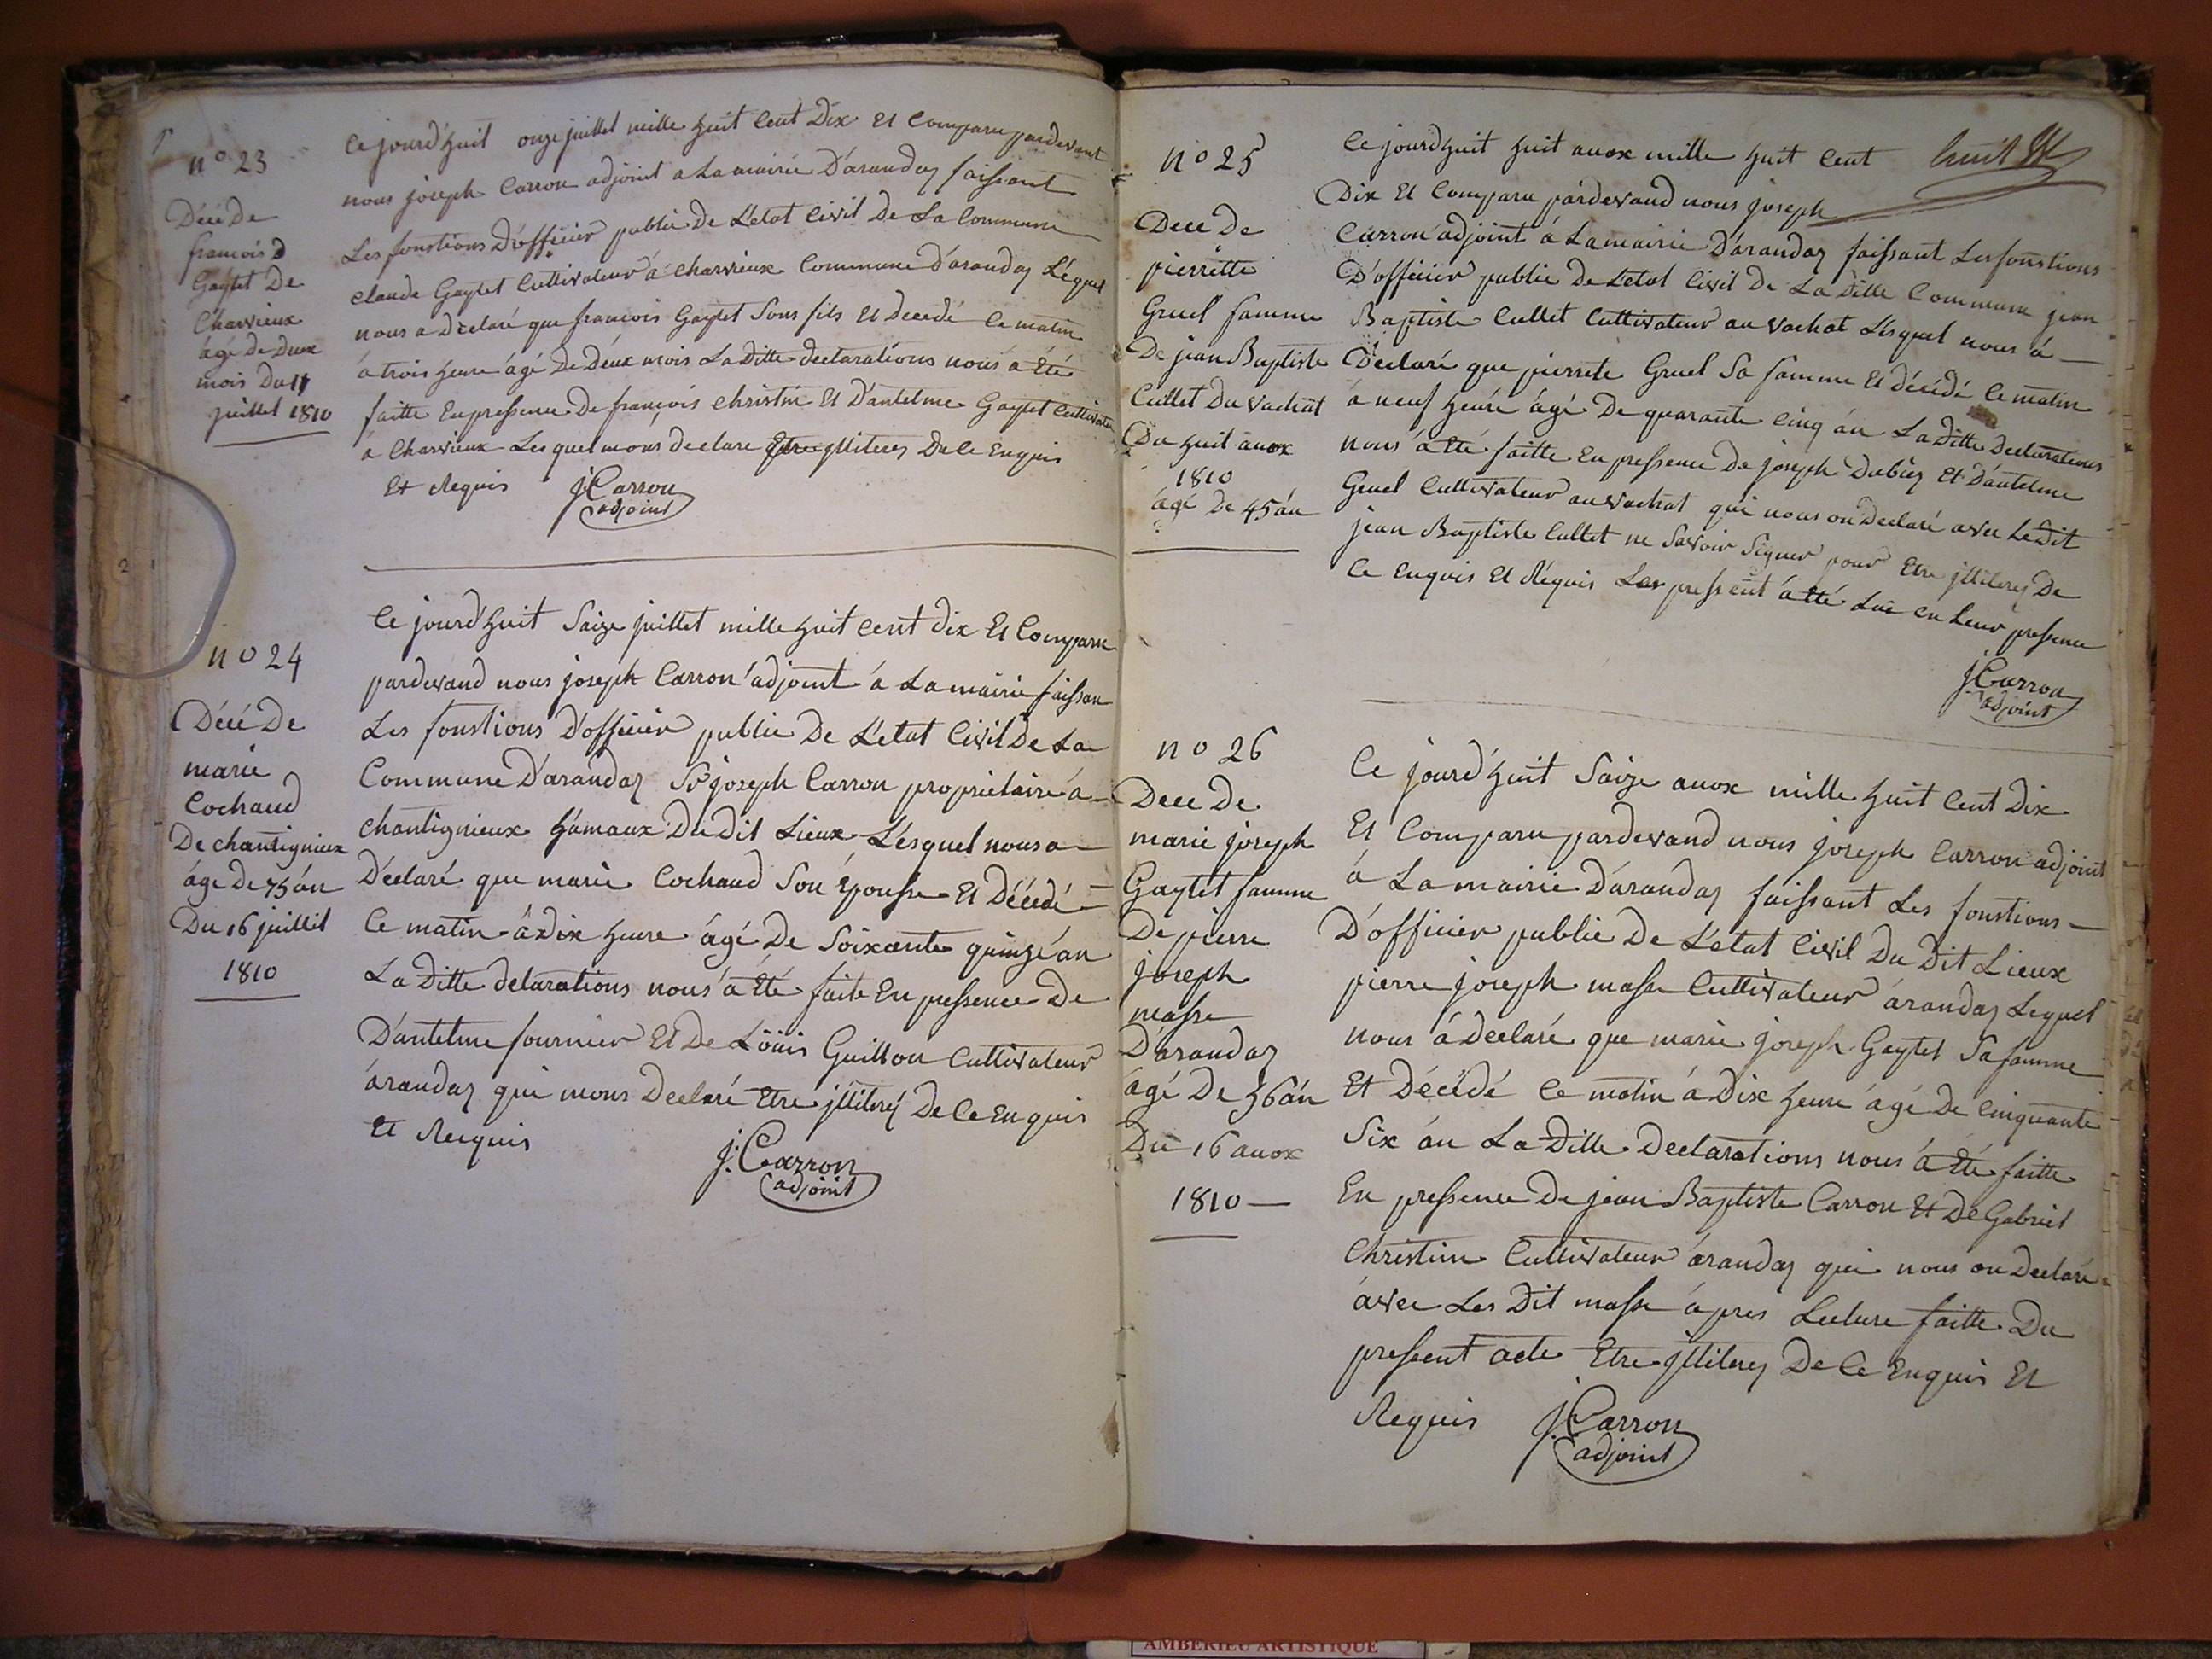 n° 23
Décé De
francois
Gaytet De
Charvieux
âgé de Deux
mois Du 11
juillet 1810
Ce jourd'huit onze juillet mille huit Cent Dix Et Comparu pardevant
nous joseph Carron adjoint a La mairie D'arandaz faissant
Les fonstions D'officier public De L'etat Civil De La Commune
claude Gaytet Cultivateur a Charvieux Commune D'arandaz Léquel
nous a Déclaré que francois Gaytet Sons fils Et Decedé Ce matin
á trois heure ágé De Deux mois La Ditte declarations nous a Eté
faitte En pressence De françois christin Et D'antelme Gaytet Cultivateur
a Charvieux Lesquel mons declare Etre jlliteres De Ce Enquis
Et Requis j. Carron
adjoint
n° 24
Décé De
marie
Cochaud
De chantignieux
âge De 75 án
Du 16 juillet
1810
Ce jourd'huit Saize juillet mille huit Cent dix Et Comparu
pardevand nous joseph Carron adjoint á La mairie faissan
Les fonstions D'officier public De L'etat Civil De La
Commune D'arandaz Sr joseph Carron propriétaire á
chantignieux hamaux Du Dit Lieux Lésquel nous a
Déclaré que marie Cochaud Son Epousse Et Décedé
Ce matin á Dix heure ágé De Soixante quinze án
La Ditte delarations nous á Eté faite En pressence De
D'antelme fournier Et De Loüis Guillon Cultivateur
árandaz qui mons Declaré Etre jlliteré De Ce Enquis
Et Requis
j. Carron
adjoint
n° 25
Dece De
pierrette
Gruel famme
De jean Baptiste
Cullet Du Vachat
Du huit auox
1810
ágé De 45 án
huit
Ce jourdhuit huit auox mille huit Cent
Dix Et Comparu pardevand nous joseph
Carron adjoint á La mairie D'arandaz faissant Les fonstions
D'officier public De L'etat Civil De La Ditte Commune jean
Baptiste Cullet Cultivateur au Vachat Lésquel nous á
Declaré que pierrete Gruel Sa famme Et Décédé Ce matin
á neuf heure ágé De quarante Cinq án La Ditte Declarations
nous á Eté faitte En pressence De joseph Dubiez Et D'antelme
Gruel Cultivateur au Vachat qui nous on Declaré avec Le Dit
jean Baptiste Cullet ne Savoir Signer pour Etre jlliterez De
Ce Enquis Et Réquis Les pressent á Eté Lüe en Leur pressence
j. Carron
adjoint
n° 26
Dece De
marie joseph
Gaytet famme
De pierre
joseph
masse
D'arandaz
ágé De 56 án
Du 16 auox
1810
Ce jourd'huit Saize auox mille huit Cent Dix
Et Comparu pardevand nous joseph Carron adjoint
á La mairie D'arandaz faissant Les fonstions
D'officier public De L'etat Civil Du Dit Lieux
pierre joseph masse Cultivateur árandaz Lequel
nous á declaré que marie joseph Gaytet Sa famme
Et Décédé Ce matin á Dix heure ágé De Cinquante
Six án La Ditte Declarations nous á Eté faitte
En pressence De jean Baptiste Carron Et De Gabriel
Christin Cultivateur árandaz qui nous on Declaré
ávec Les Dit masse á pres Lecture faitte Du
pressent acte Etre jlliterez De Ce Enquis Et
Requis j. Carron
adjoint
AMBERIEU ARTISTIQUE